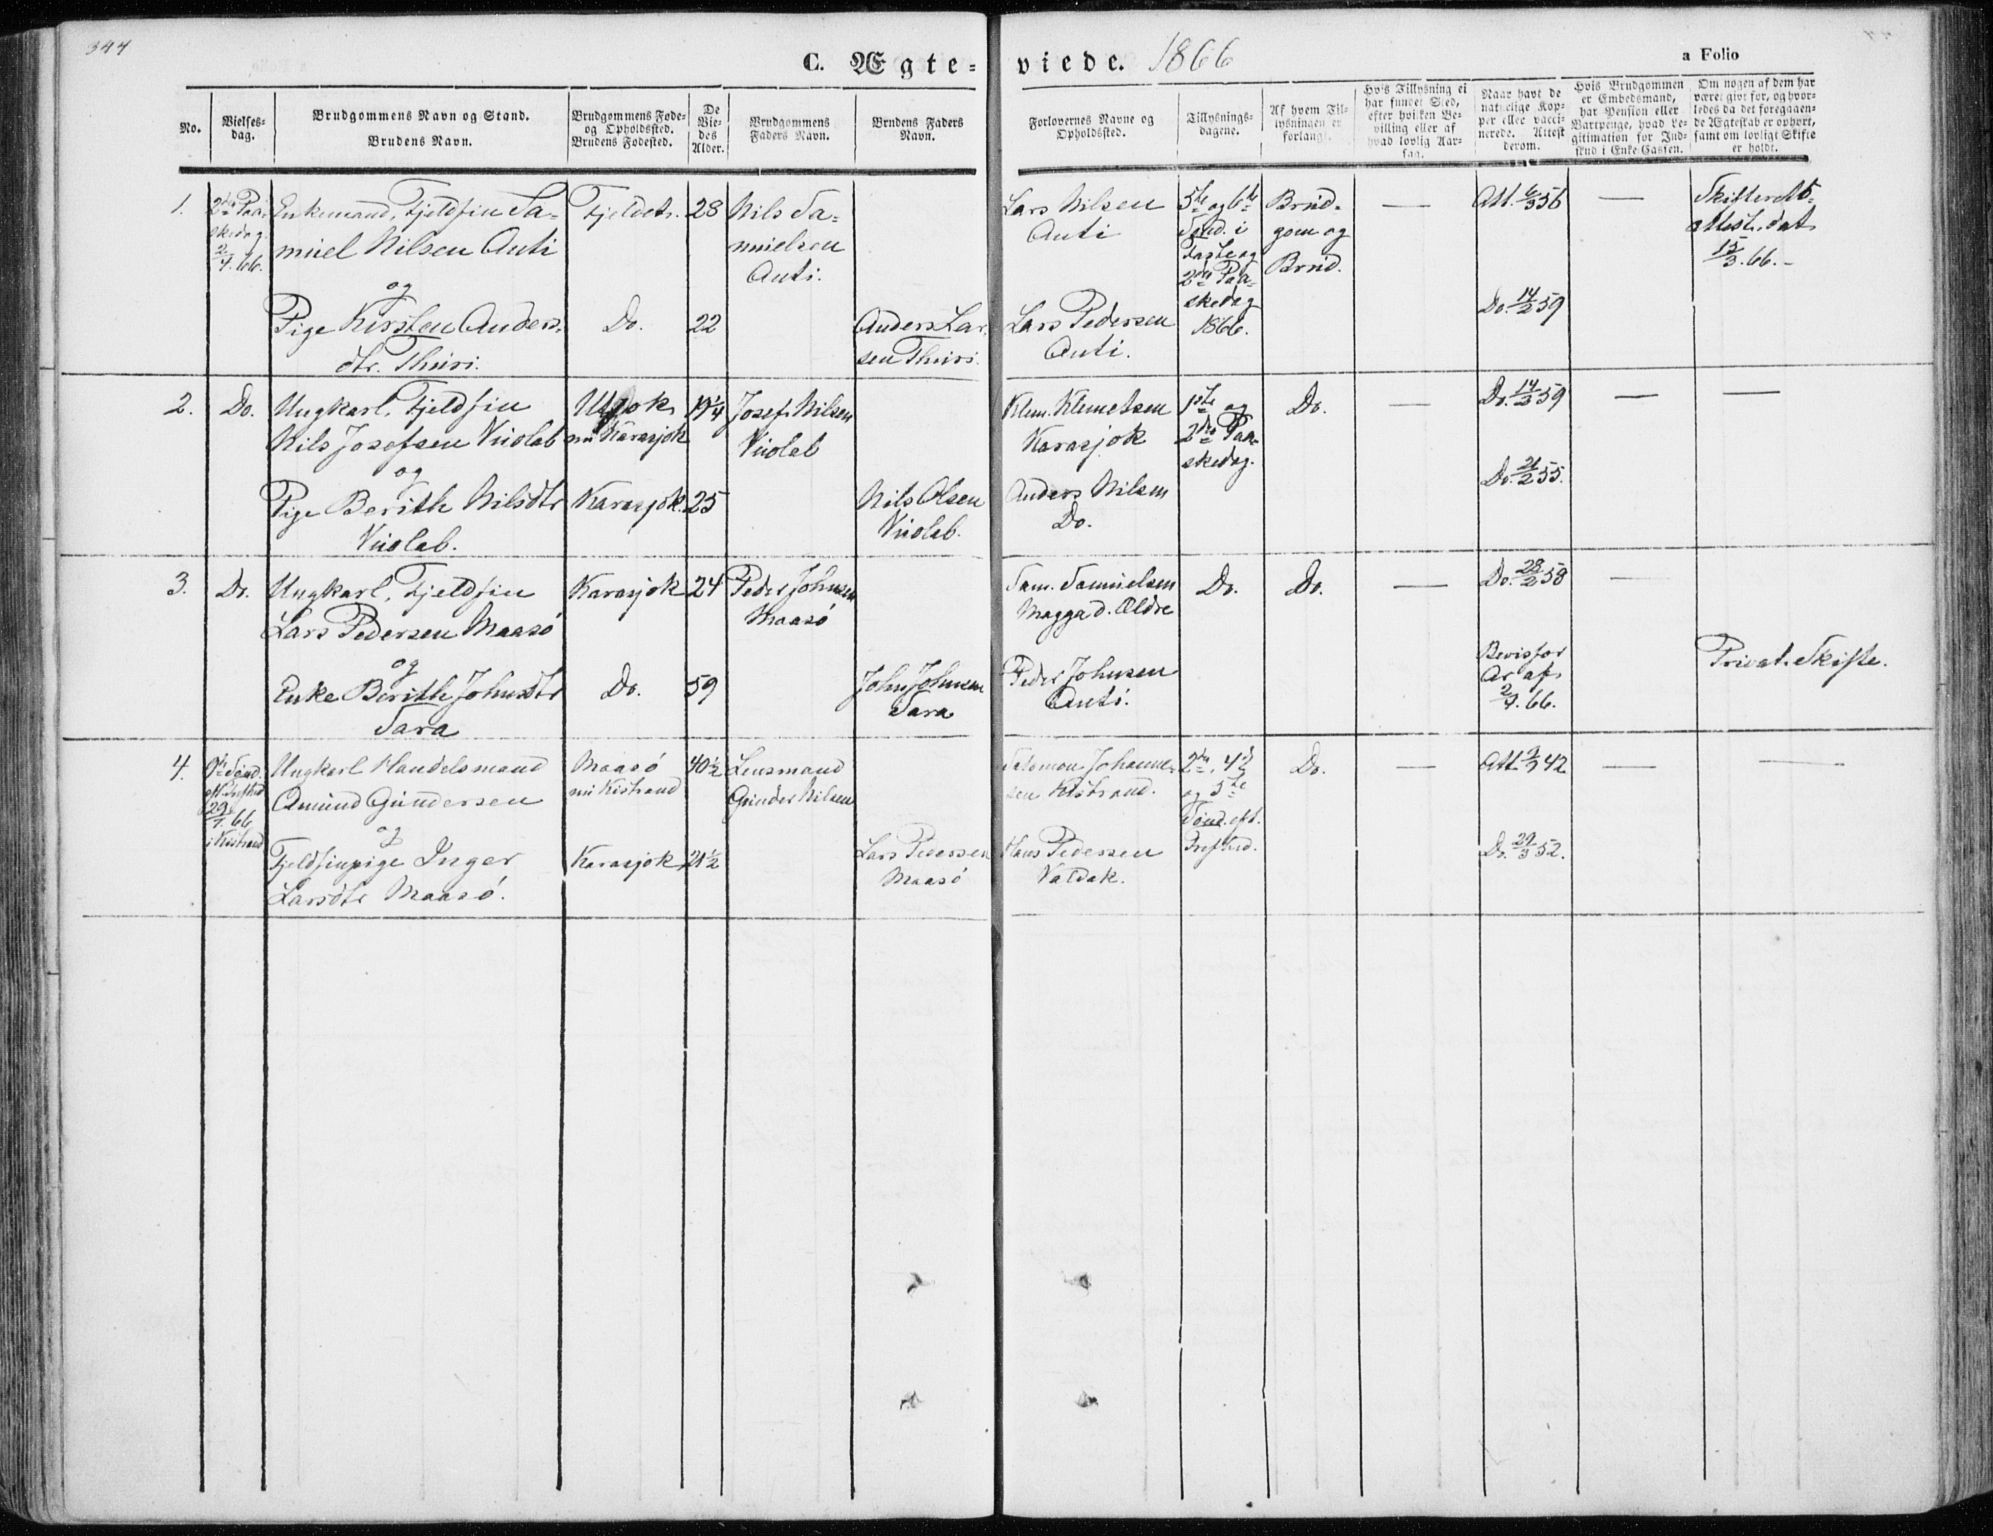 344
C. Ægte-
viede. 1866
a Folio
No.
Vielses-
dag.
Brudgommens Navn og Stand.
Brudens Navn.
Brudgommens Føde-
og Opholdssted.
Brudens Fødested.
De
Vie-
des
Alder.
Brudgommens
Faders Navn.
Brudens Faders
Navn.
Forlovernes Navne og
Opholdssted.
Tillysnings-
dagene.
Af hvem Til-
lysningen er
forlangt.
Hvis Tillysning ei
har fundet Sted,
efter hvilken Be-
villing eller af
hvad lovlig Aar-
sag.
Naar havt de
naturlige Kop-
per eller vacci-
nerede. Attest
derom.
Hvis Brudgommen
er Embedsmand,
har Pension eller
Vartpenge, hvad Le-
gitimation for Ind-
skud i Enke Cassen.
Om nogen af dem har
været givt før, og hvor-
ledes da det foregaaen-
de Ægteskab er ophørt,
samt om lovligt Skifte
er holdt.
1.
2den Paa-
skedag
2/4.66.
Enkemand, Fjeldfin Sa-
muel Nilsen Anti
og
Pige Kirsten Anders-
dtr. Thuri.
Fjeldet.
Do.
28
22
Nils Sa-
muelsen
Anti.
Anders Lar-
sen Thuri.
Lars Nilsen
Anti
Lars Pedersen
Anti.
5te og 6te
Sønd. i
Faste og
2den Paa-
skedag
1866.
Brud-
gom og
Brud.
—
Att. 6/3 56
Do. 14/2 59
—
Skifteretts-
attest. dat.
15/3.66.-
2.
Do.
Ungkarl, Fjeldfin
Nils Josefsen Vuolab
og
Pige Berith Nilsdtr
Vuolab.
Utsjok
nu Karasjok
Karasjok.
19 1/4
25
Josef Nilsen
Vuolab
Nils Olsen
Vuolab.
Klem. Klemetsen
Karasjok
Anders Nilsen
Do.
1ste og
2den Paa-
skedag.
Do.
—
Do. 14/2 59
Do. 21/2 55.
—
—
3.
Do.
Ungkarl, Fjeldfin
Lars Pedersen Maasö
og
Enke Berith Johnsdtr
Sara
Karasjok
Do.
24
59
Peder Johnsen
Maasö
John Johnsen
Sara
Sam. Samuelsen
Magga d. Ældre
Peder Johnsen
Anti.
Do.
Do.
—
Do. 28/2 58
Bevis for
Ar af
2/4.66.
—
Privat. Skifte.
4.
Sönd.
29/7.66
i Kistrand
Ungkarl Handelsmand
Amund Gundersen
og
Fjeldfinpige Inger
Larsdtr Maasö.
Maasö
nu Kistrand
Karasjok
40 1/2
21 1/2
Lensmand
Gunder Nilsen
Lars Pedersen
Maasö
Salomon Johanne-
sen Kistrand.
Hans Pedersen
Valdak.
2den, 4de
og 5te
Sönd. eft.
Trefold.
Do.
—
Att. 42
Do. 29/3 52.
—
—